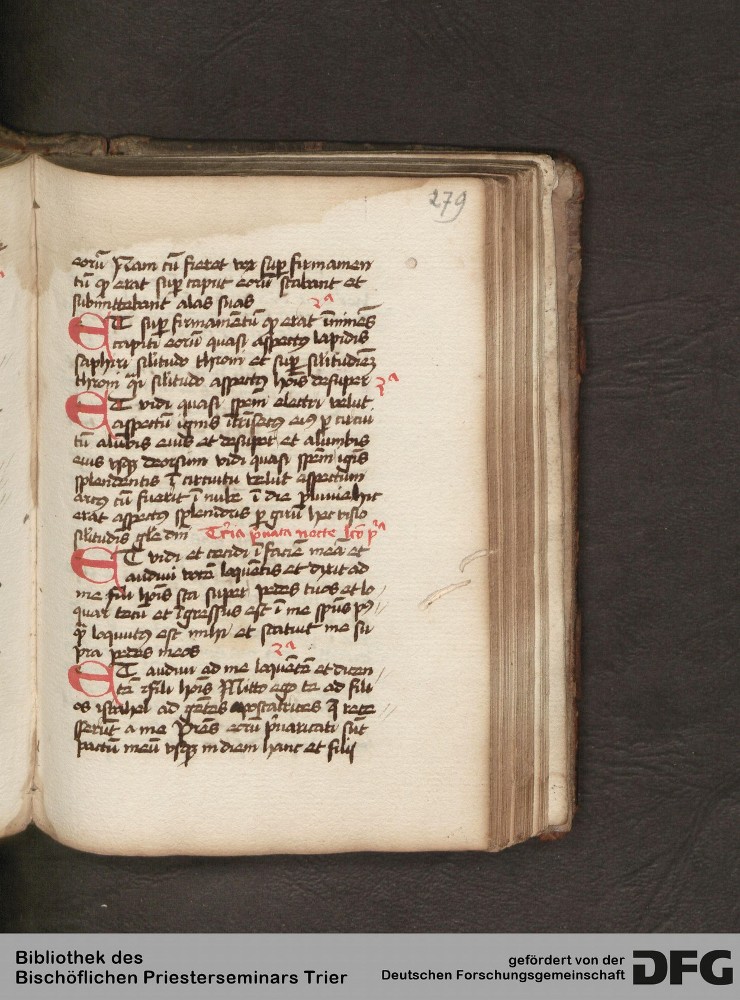 279
eorū Nam cū fieret vox sup firmamen
tū qp erat sup caput eorū stabant et
submittebant alas suas
2ª
ET sup firmamentū qp erat īminēs
capiti eorū quasi aspectus lapidis
saphiri silitudo throni et sup silitudīeꝫ
throni q̄i silitudo aspectus hoīs desuper
3ª
ET vidi quasi spem electri velut
aspectū ignis
tū alūbis eius et desuper et alumbis
eius vsqꝫ deorsum vidi quasi spem ignis
splendentis ī circuitu velut aspectum
arcus cū fuerit ī nube ī die pluvie hic
erat aspectus splendoris p girū hec visio
silitudis gl̄e dni
nocte
ET vidi et cecidi ī faciē mea et
audiui vocē loquentis et dixit ad
me fili hoīs sta super pedes tuos et lo
quar tecū et īgressus est ī me spūs p9
q̄ loquutus est mihi et statuit me su
pra pedes meos
2ª
ET audiui ad me loquentē et dicen
tē fili hoīs Mitto ego te ad fili
os israhel ad gētes apostatrices q̄ rece
sserūt a me Pr̄es eorū p̄uaricati sūt
pactū meū vsqꝫ in diem hanc et filij
Bibliothek des
Bischöflichen Priesterseminars Trier
gefördert von der
Deutschen Forschungsgemeinschaft
DFG